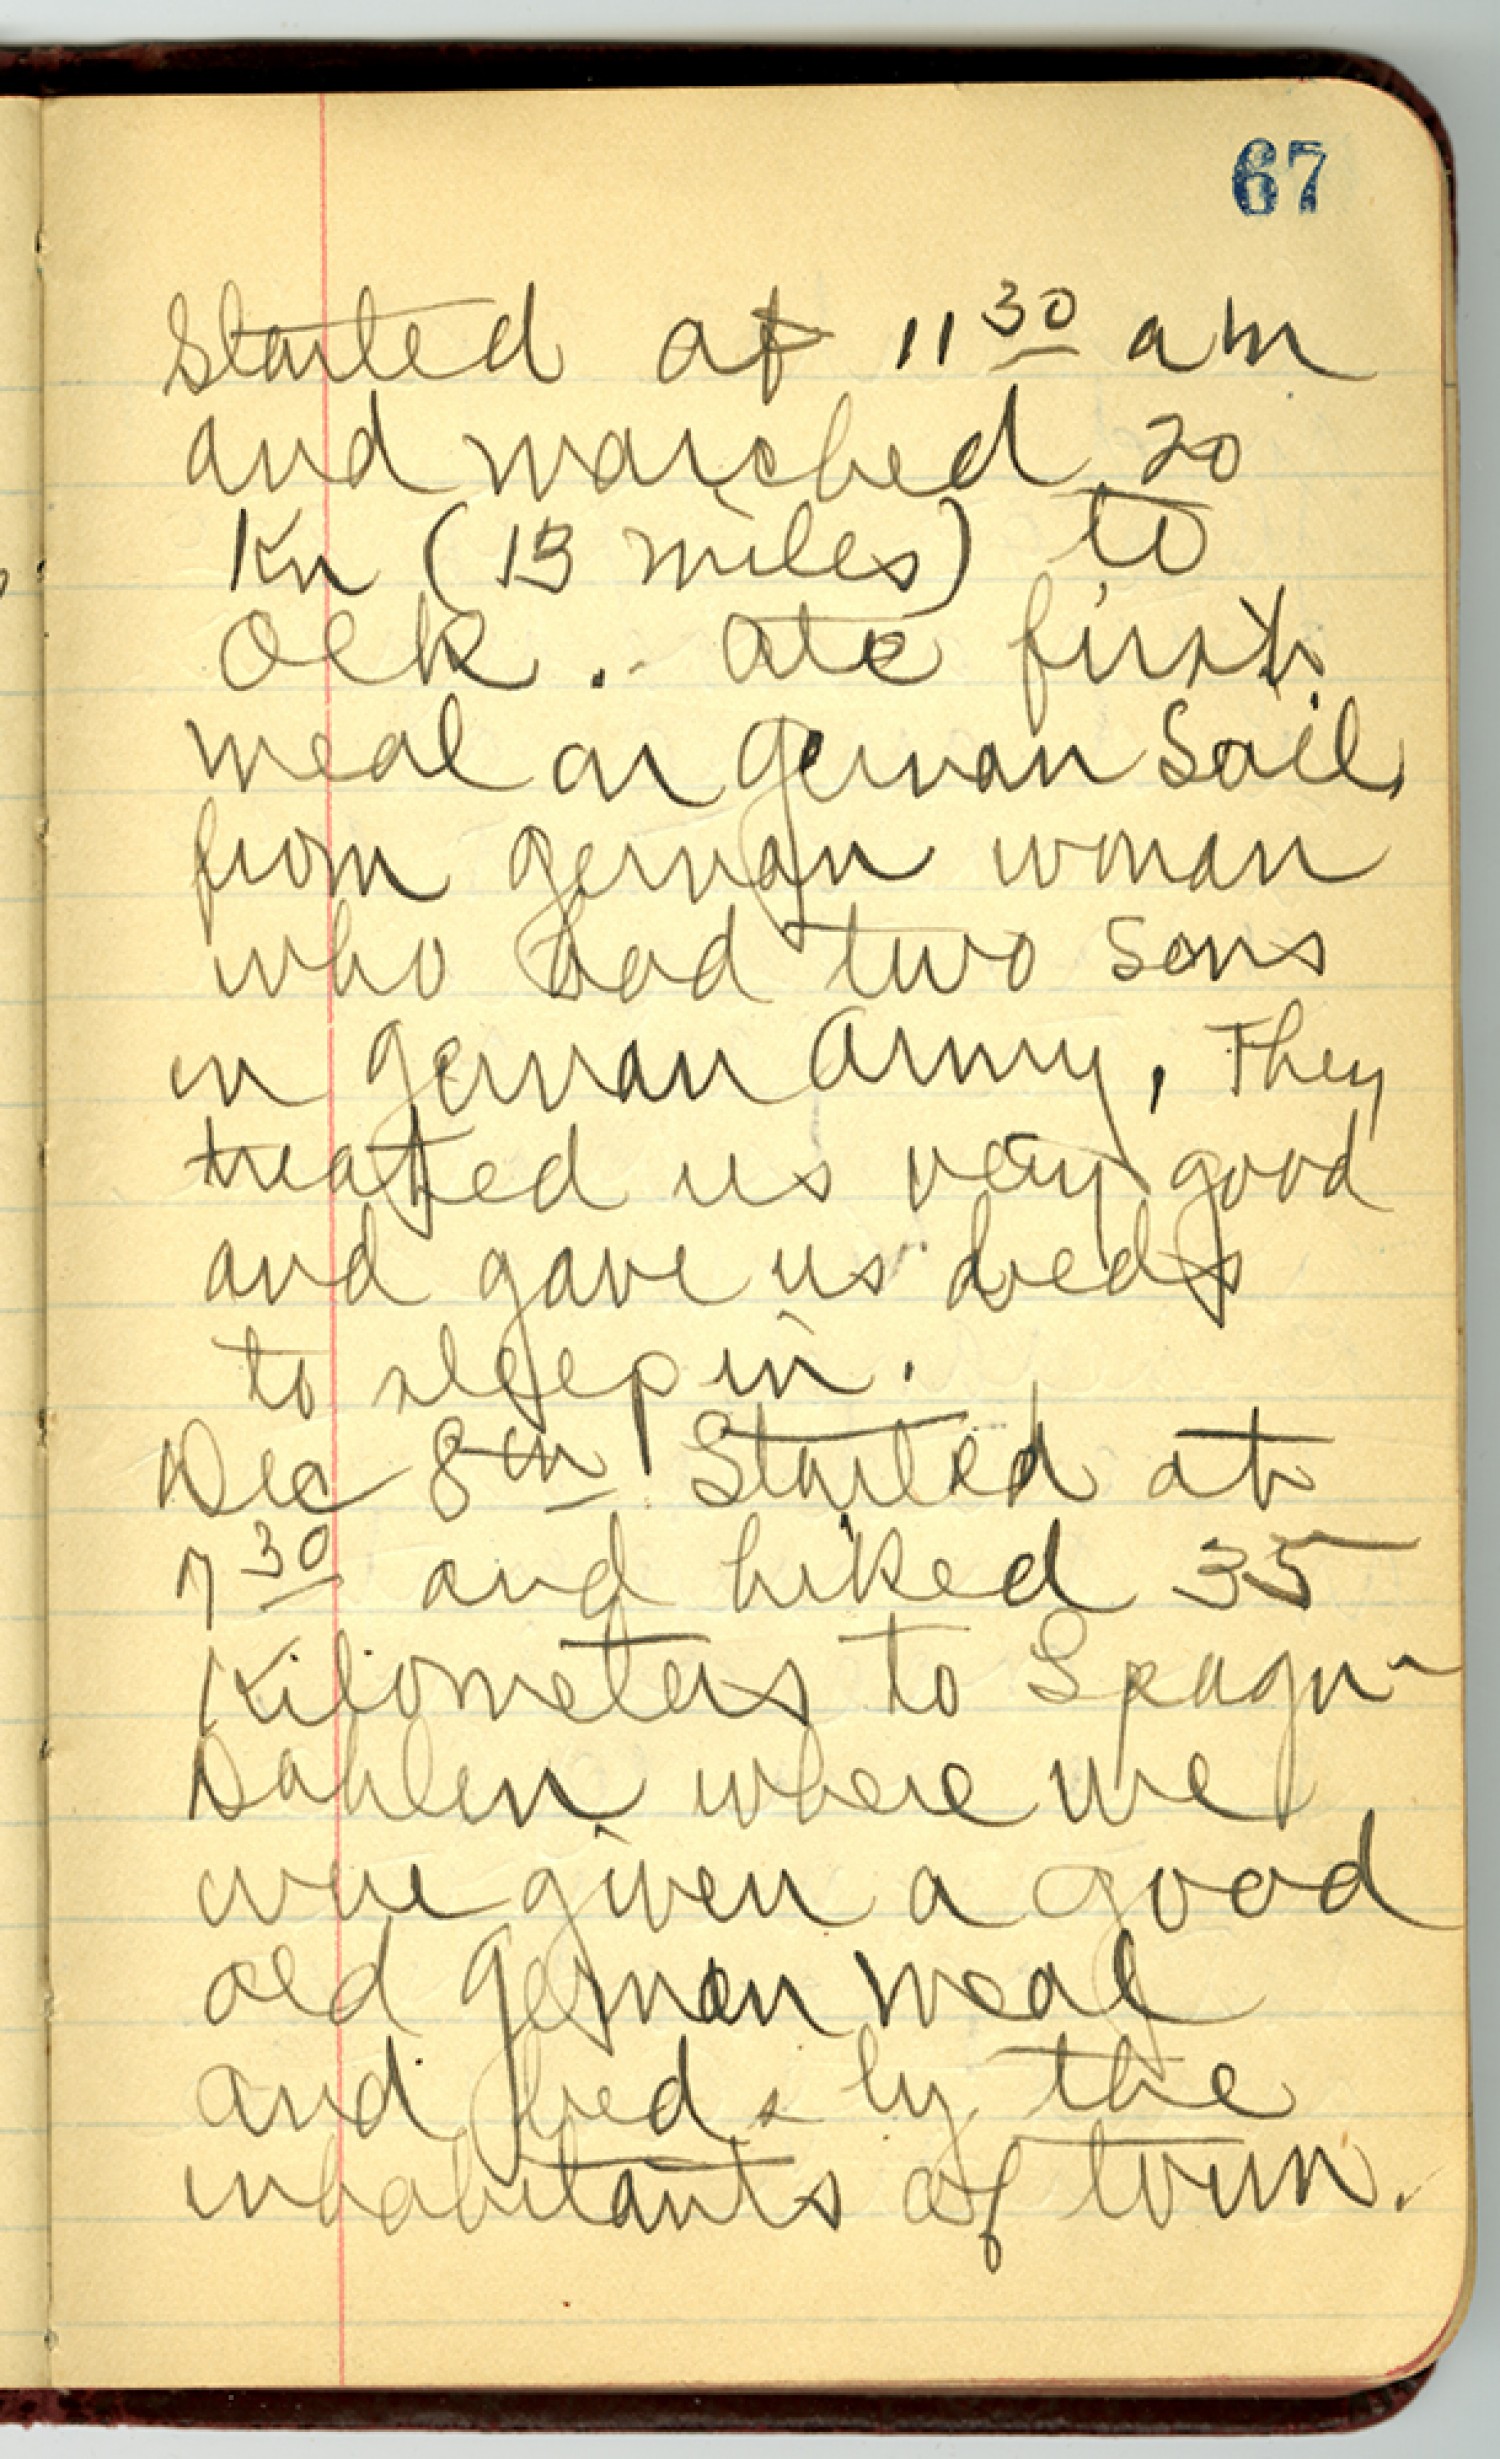 67
Started at 11 30 am
and marched 20
Km (13 miles) to
Oek. Ate first
meal on german Soil,
from german woman
who had two Sons
in german Army, They
treated us very good
and gave us beds
to sleep in.
Dec 8th Started at
7 30 and hiked 35
Kilometers to Spagn-
Dahlen where we
were given a good
old german meal
and beds by the
inhabitants of town.